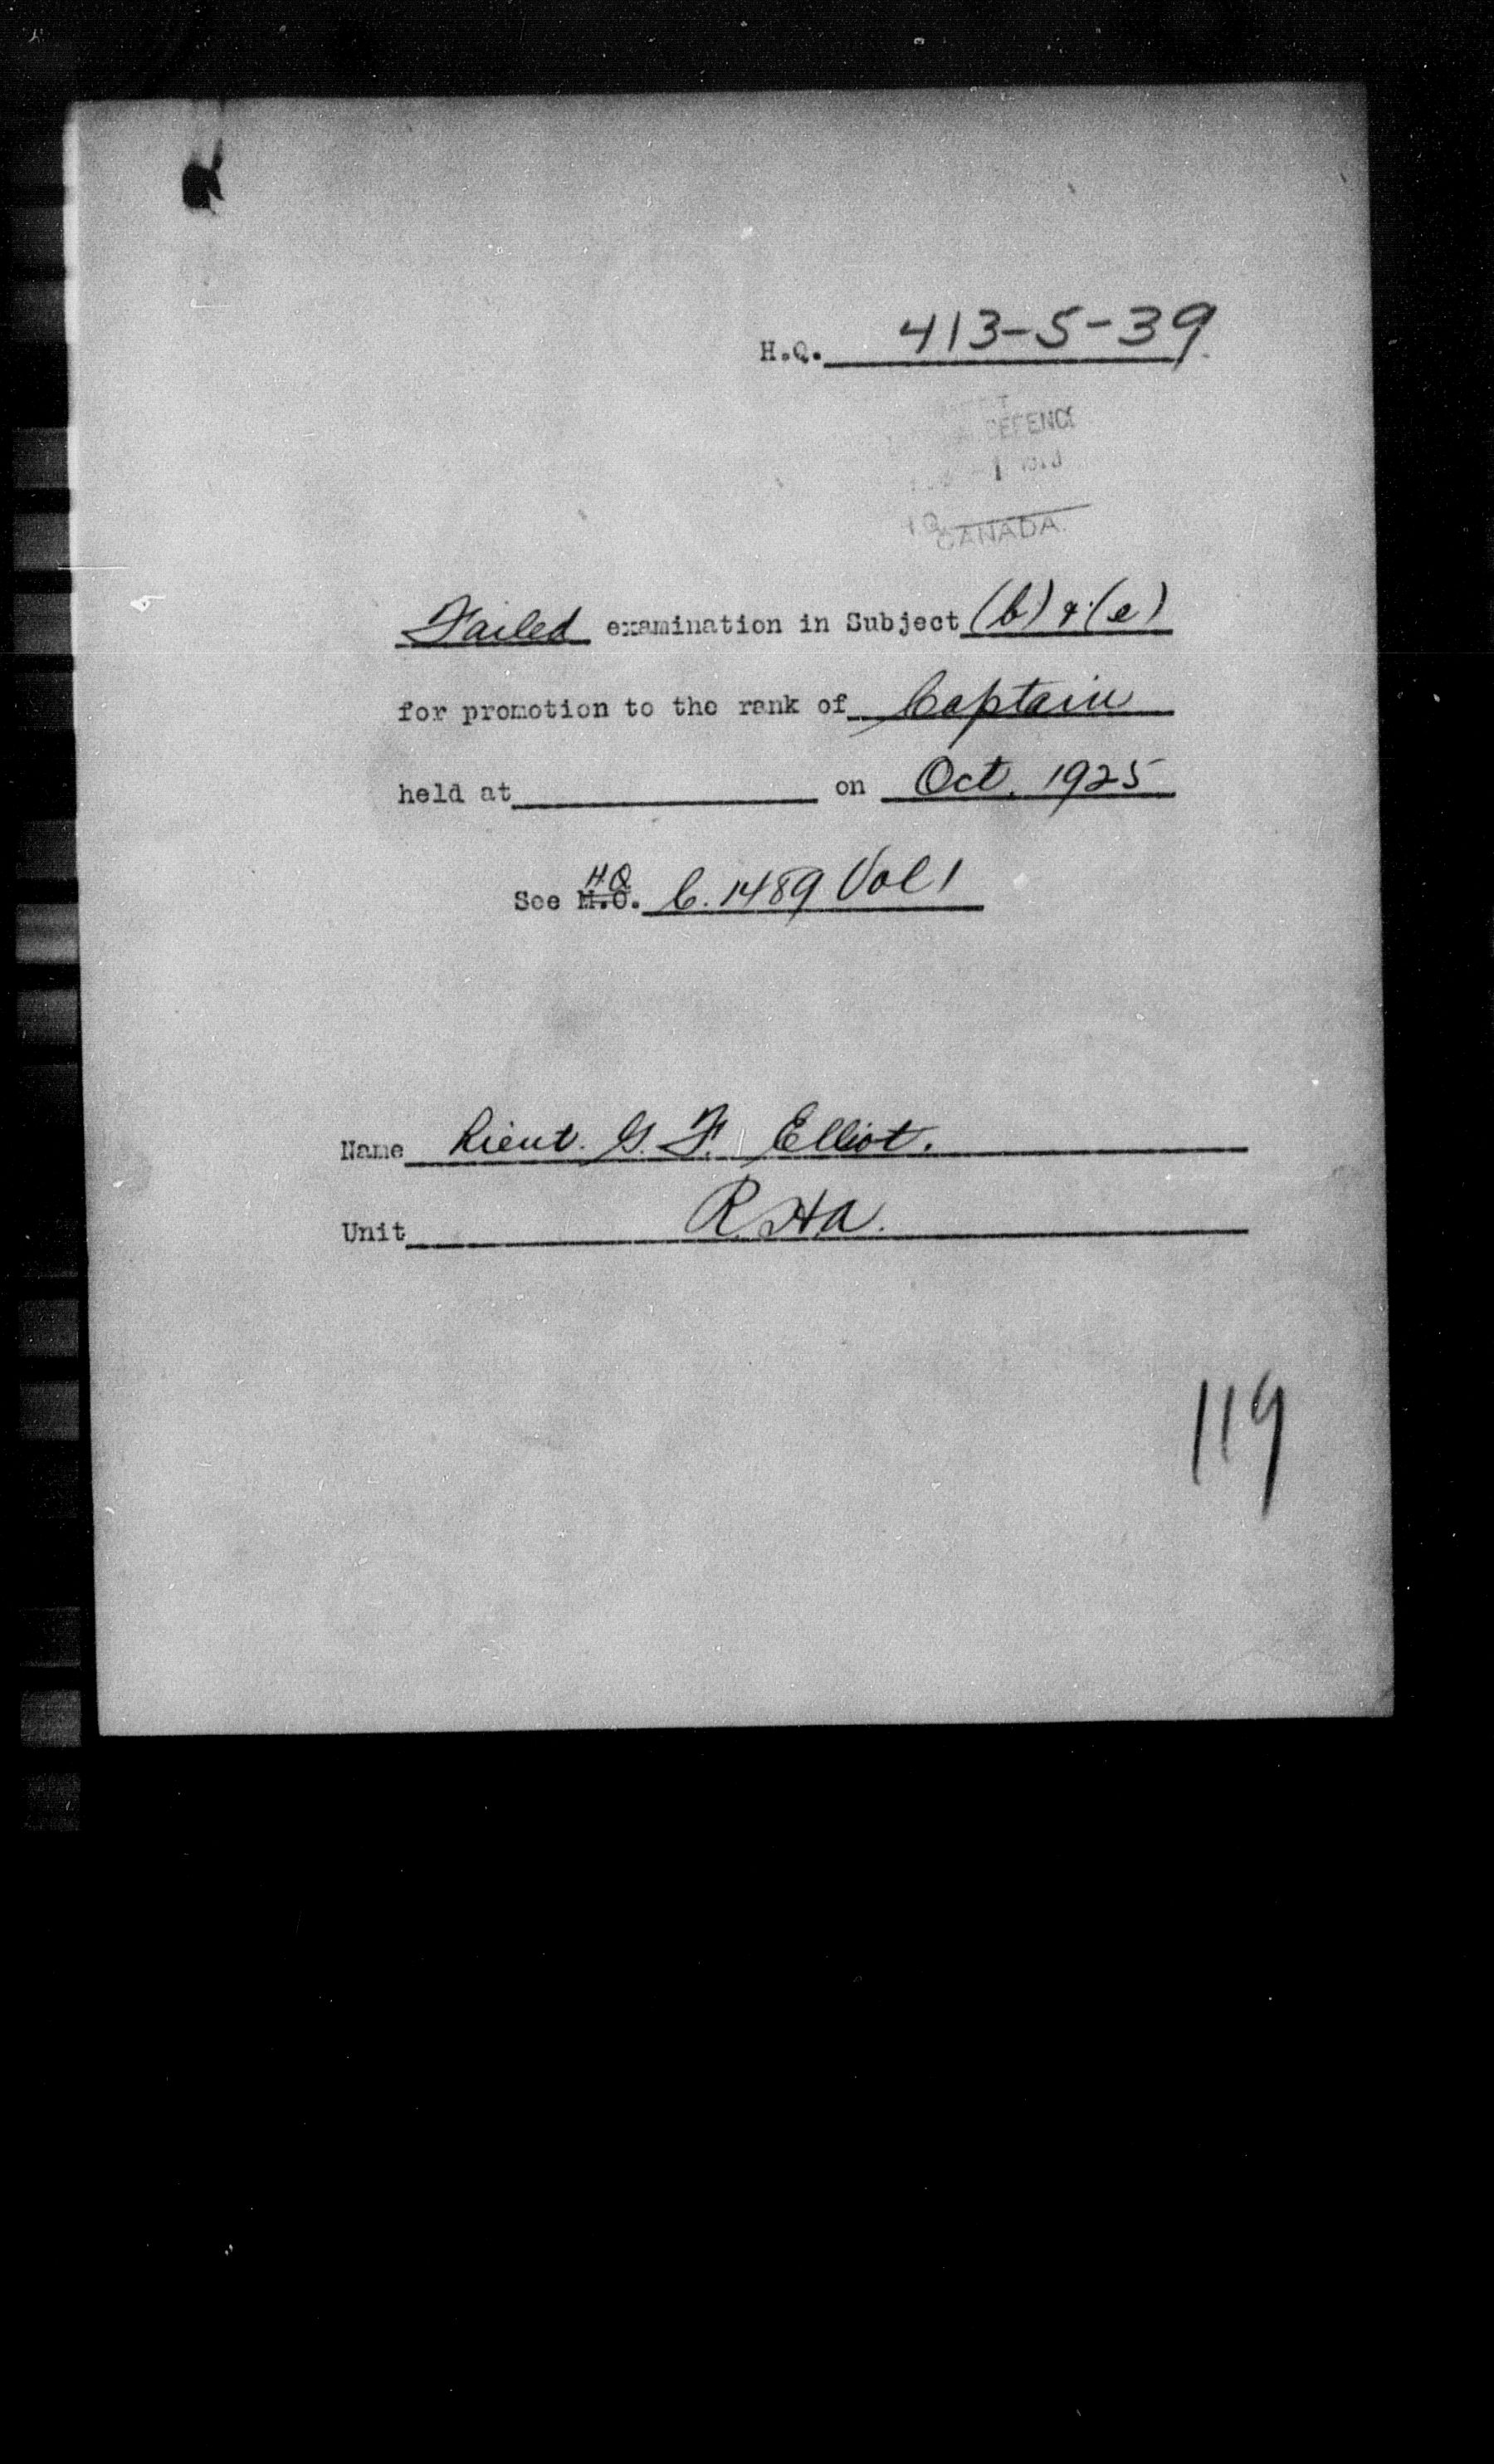 H.Q. 413-5-39
DEFENCE
CANADA.
Failed examination in Subject (b) & (e)
for promotion to the rank of Captain
held at on Oct. 1925
H.Q.
See M.O. C. 1489 Vol 1
Name Lieut. G. F. Elliot.
Unit R.H.A.
119